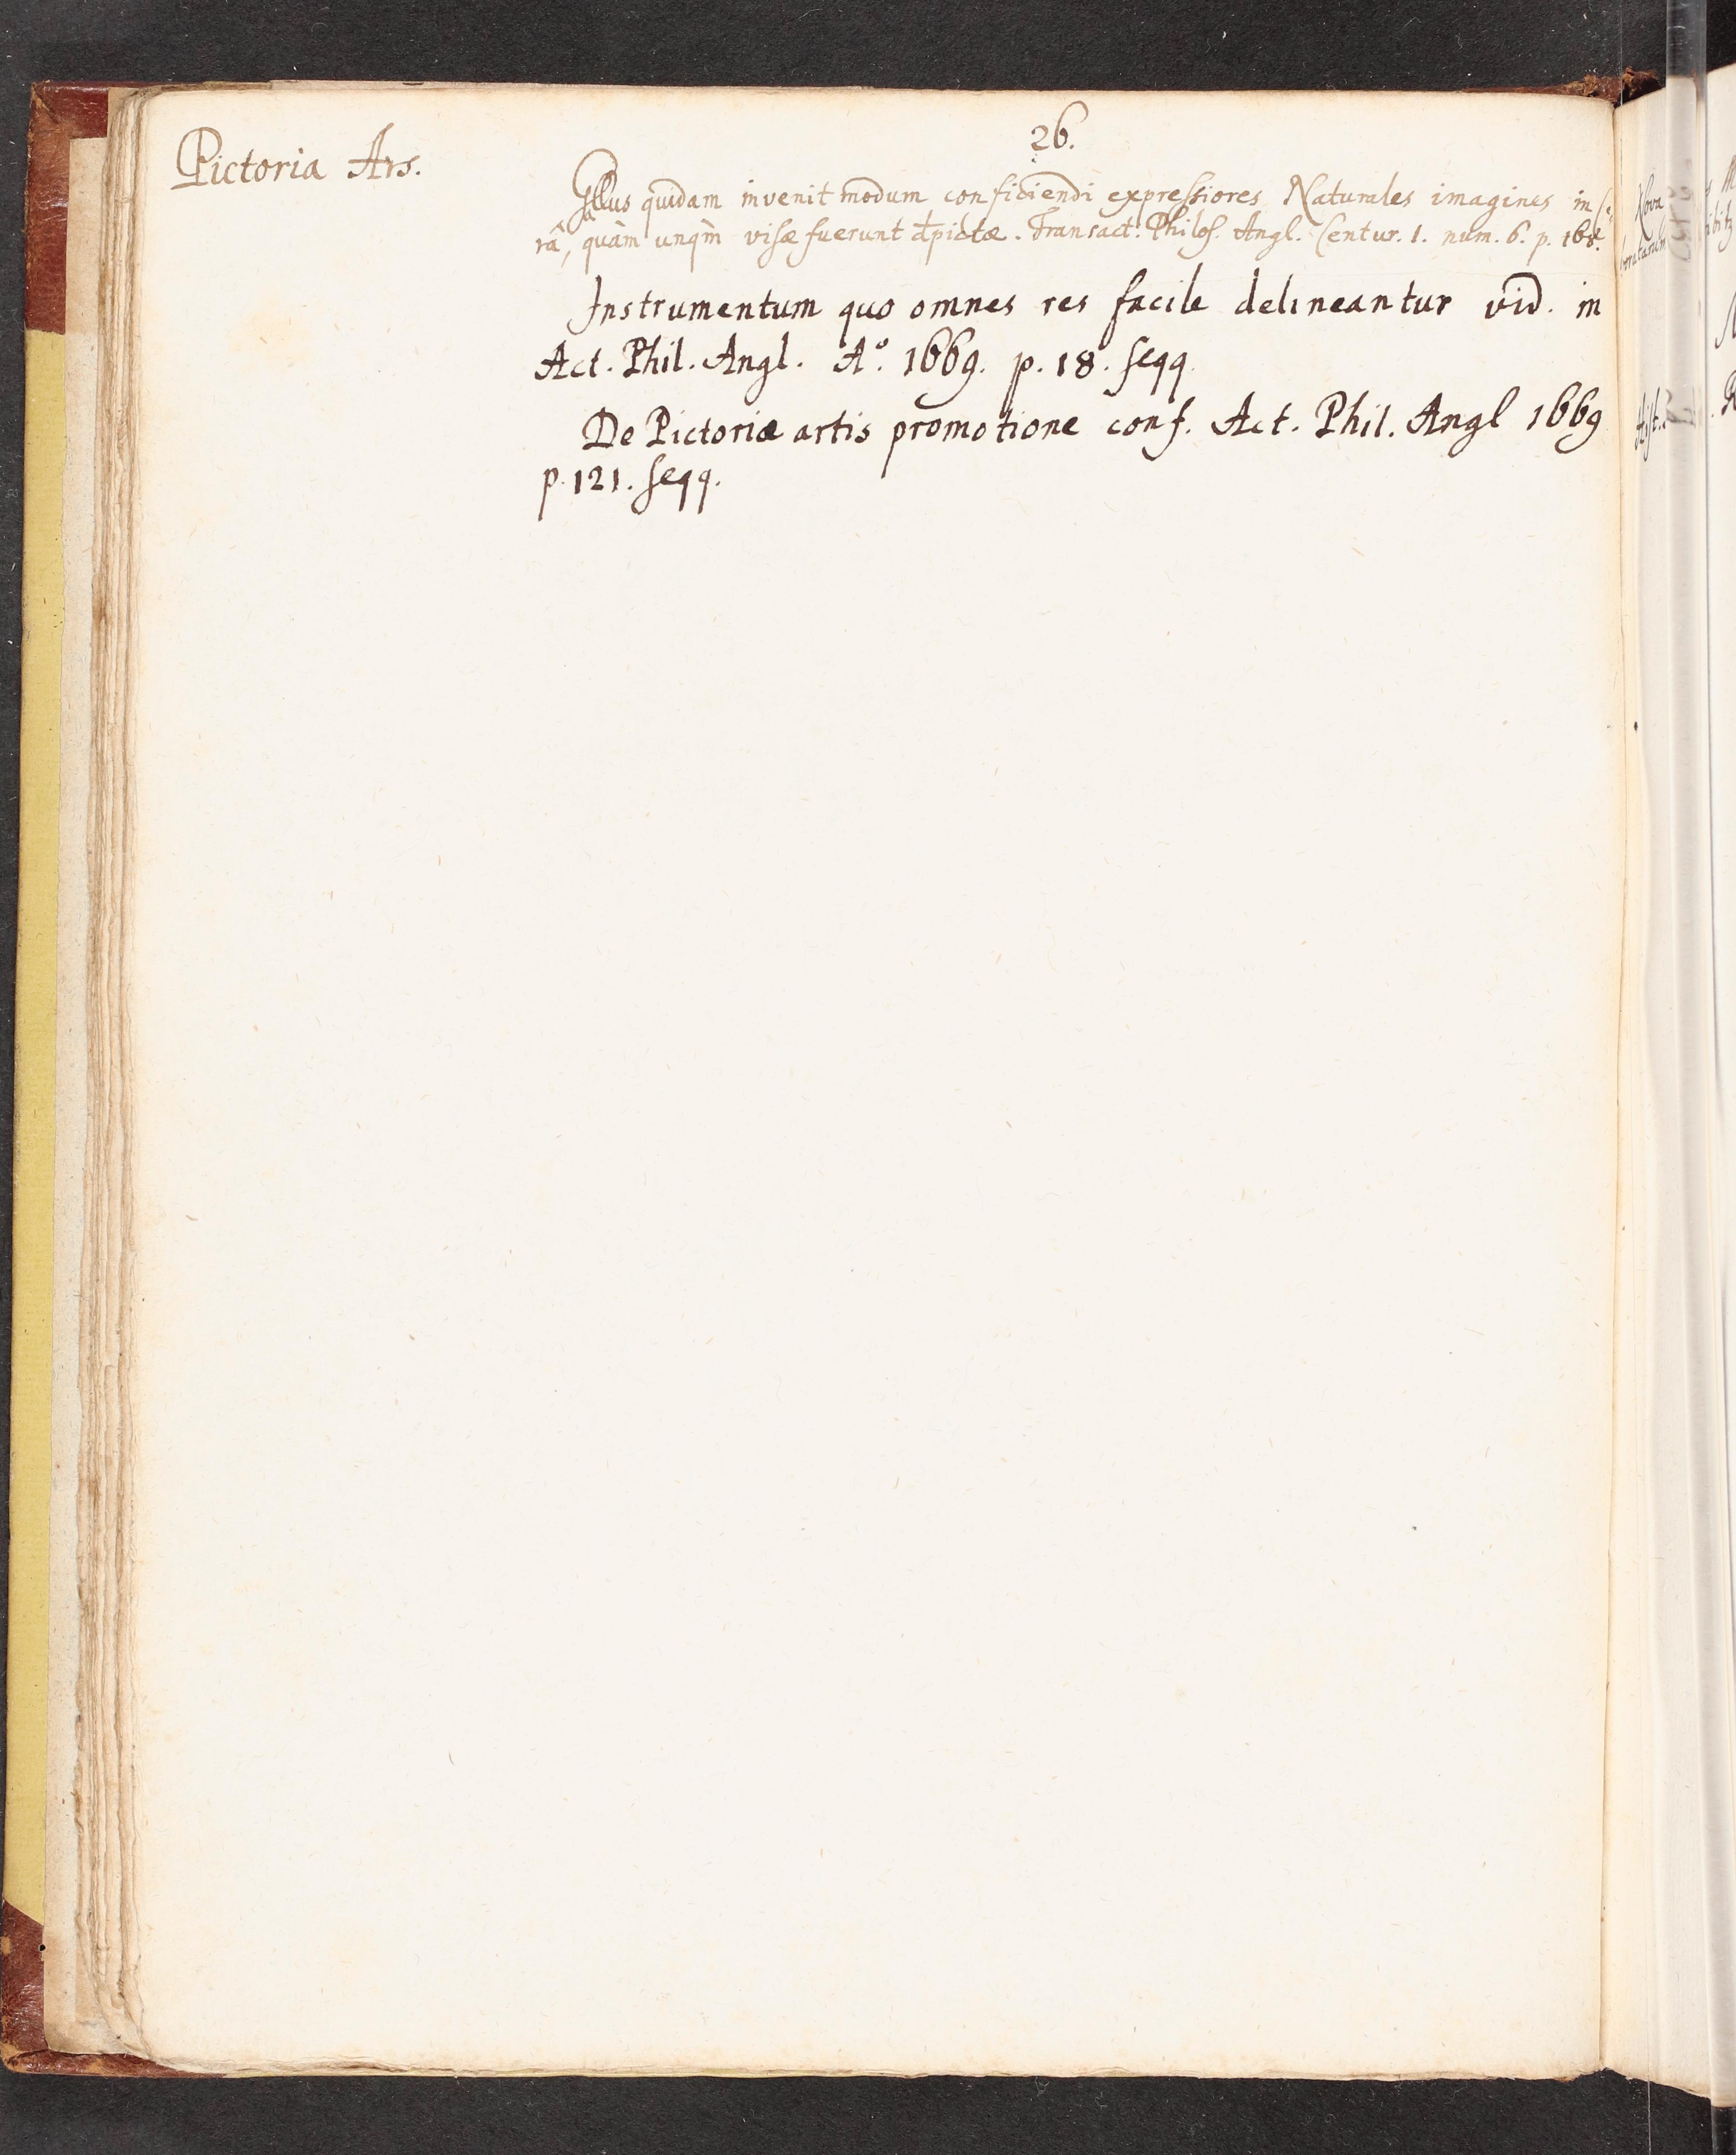 26.
Pictoria Ars.
Gallus quidam invenit modum conficiendi expressiores Naturales imagines in Ce-
râ, quàm unqm̃ visæ fuerunt depictæ. Transact. Philos. Angl. Centur. 1. num. 6. p. 168.
Instrumentum quo omnes res facile delineantur vid. in
Act. Phil. Angl. A°. 1669. p. 18. seqq.
De Pictoriæ artis promotione conf. Act. Phil. Angl 1669
p. 121. seqq.
Nova
Hist.